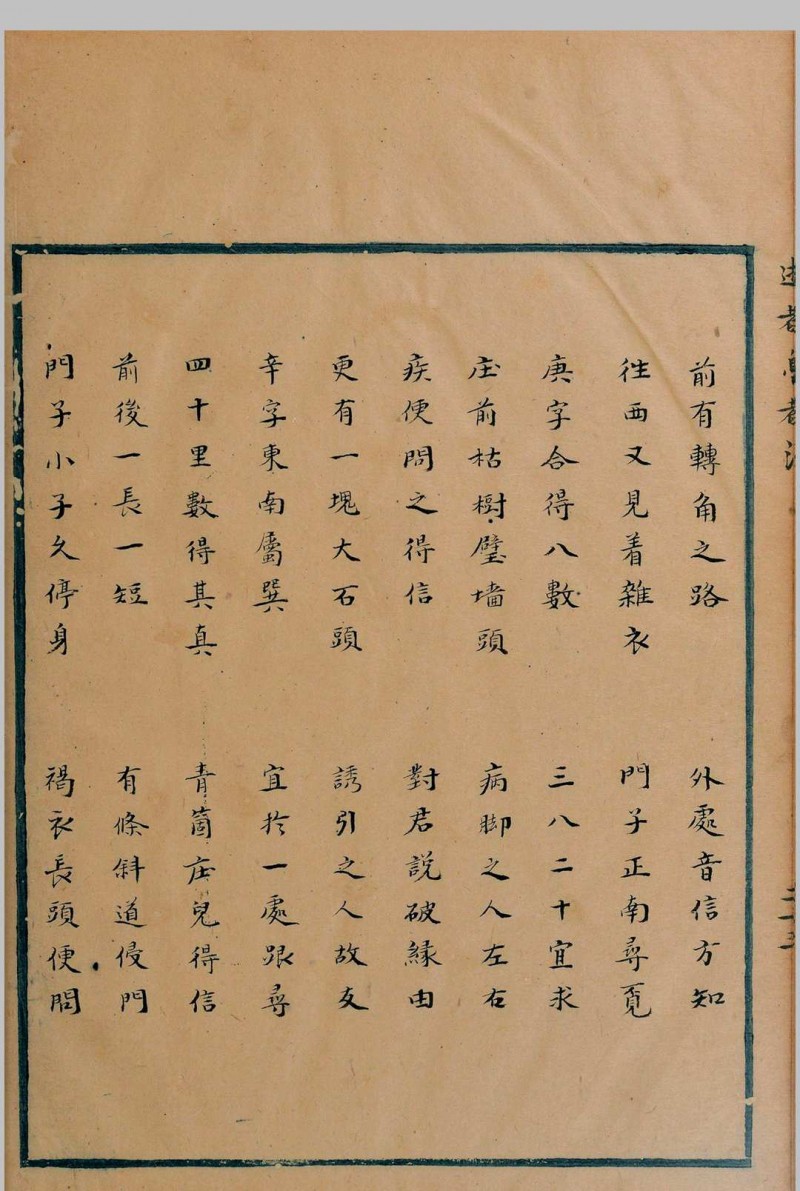 前有轉角之路　外處音信方知
徃西又見着雜衣　門子正南尋覓
庚字合得八數　三八二十宜求
庄前枯樹壁墻頭　病脚之人左右
疾便問之得信　對君説破緣由
更有一塊大石頭　誘引之人故友
辛字東南屬巽　宜扵一處跟尋
四十里數得其真　青箇庄兒得信
前後一長一短　有條斜道侵門
門子小子久停身　褐衣長頭便問